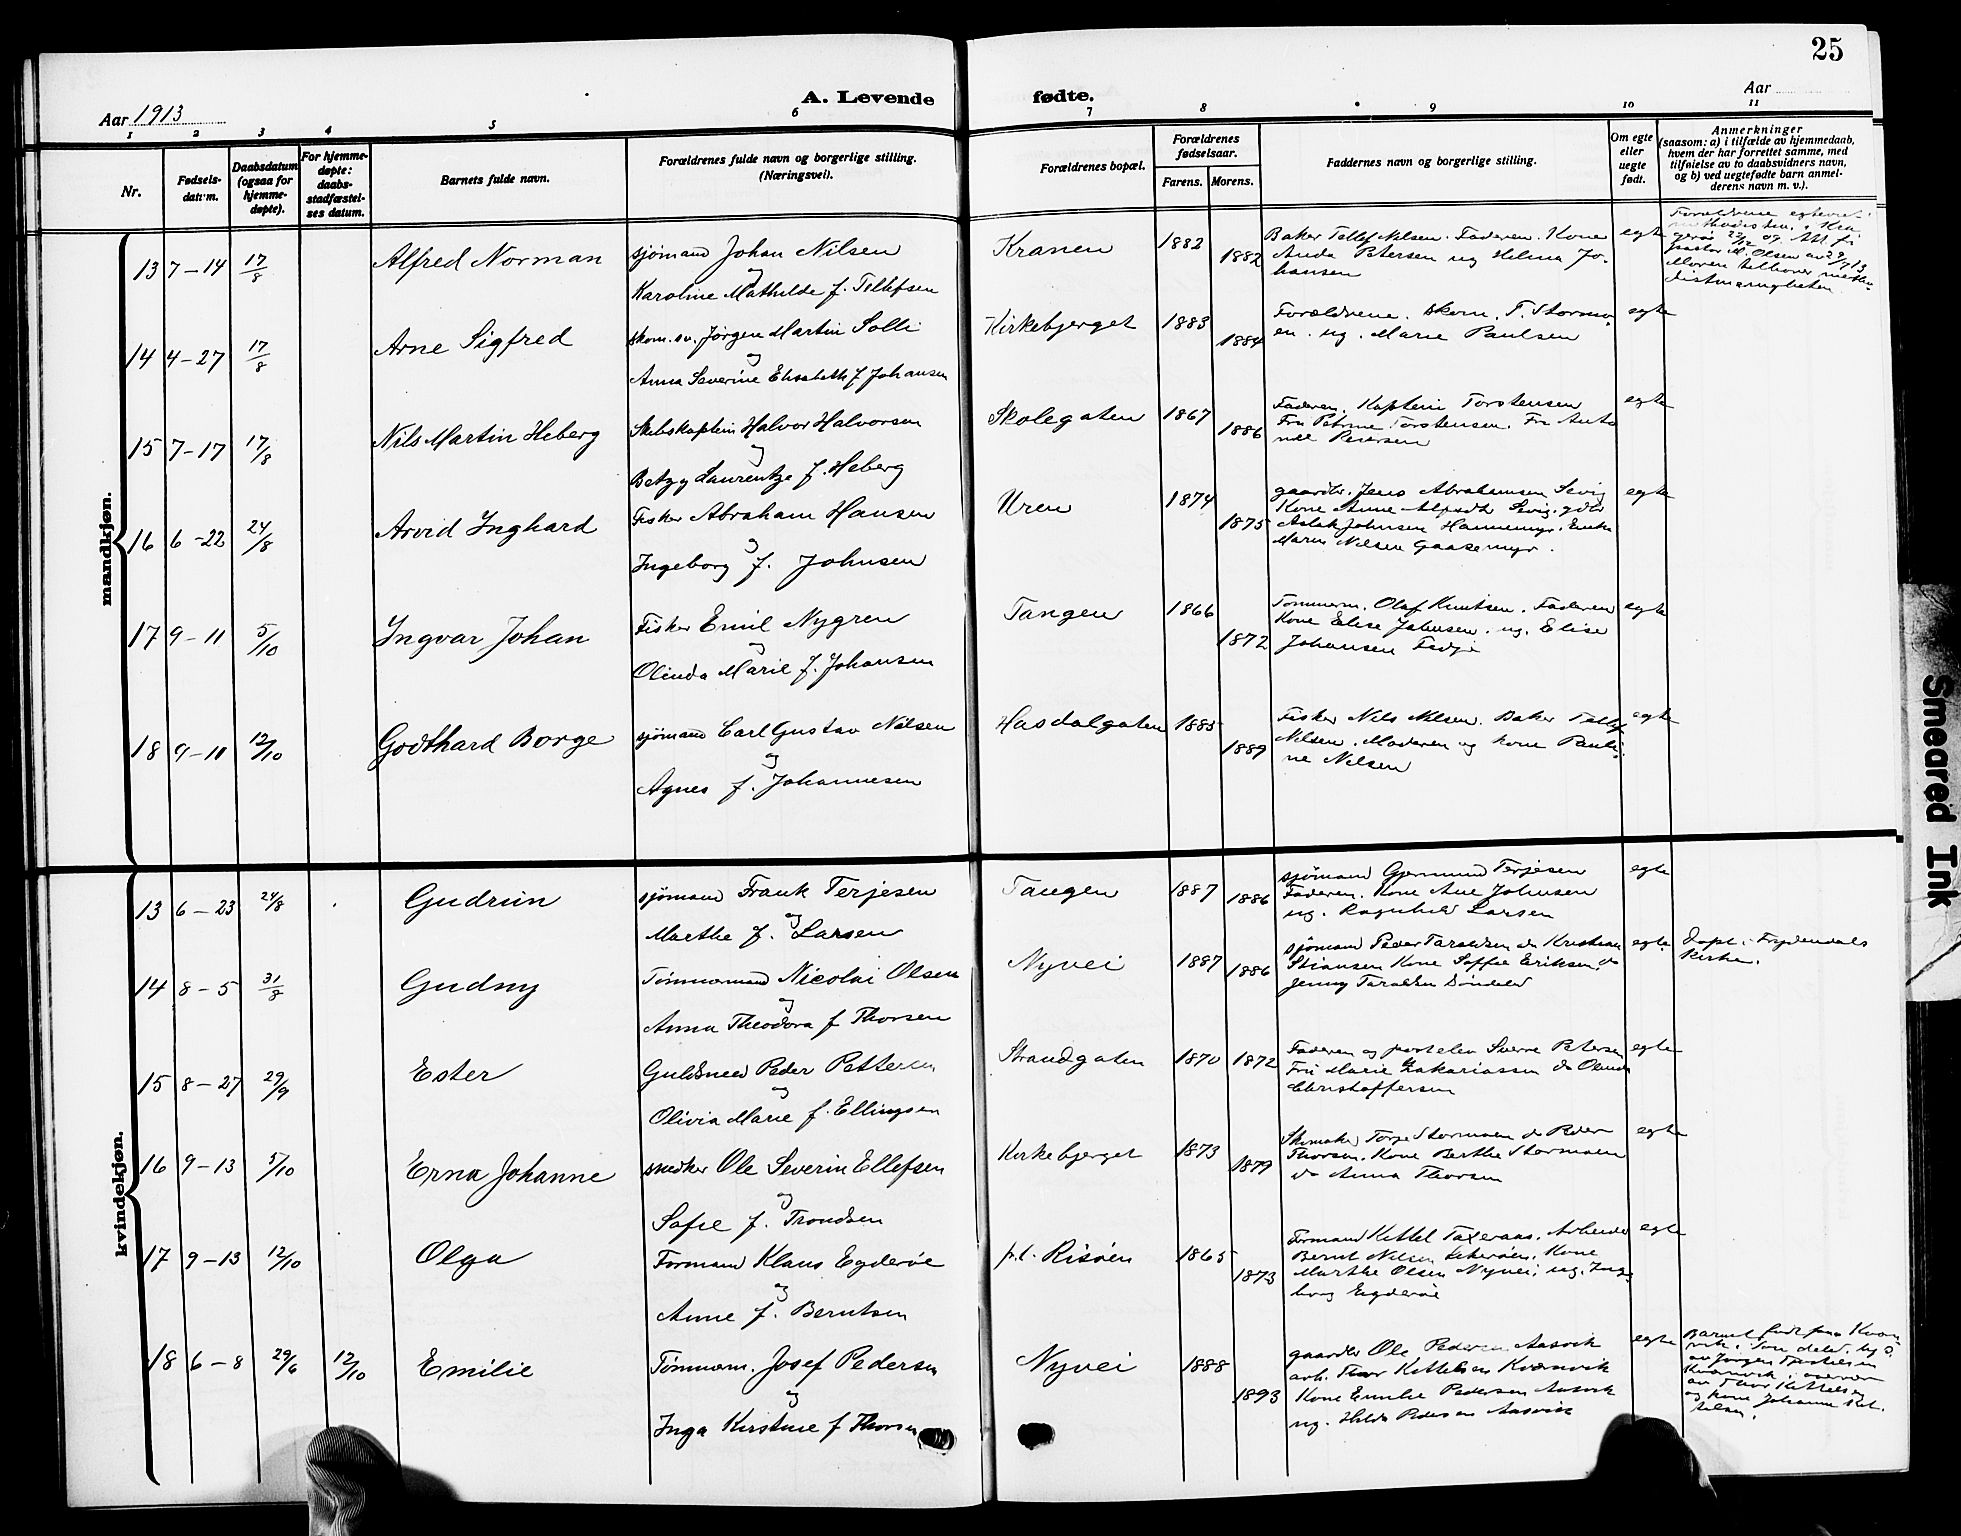 25
A. Levende fødte.
Aar 1913
Aar
1 2 3 4 5 6 7 8 9 10 11
Nr.
Fødsels-
datum.
Daabsdatum
(ogsaa for
hjemme-
døpte).
For hjemme-
døpte:
daabs-
stadfæstel-
ses datum.
Barnets fulde navn.
Forældrenes fulde navn og borgerlige stilling.
(Næringsvei).
Forældrenes bopæl.
Forældrenes
fødselsaar.
Farens. Morens.
Faddernes navn og borgerlige stilling.
Om egte
eller
uegte
født.
Anmerkninger
(saasom: a) i tilfælde av hjemmedaab,
hvem der har forrettet samme, med
tilføielse av to daabsvidners navn,
og b) ved uegtefødte barn anmel-
derens navn m. v.).
mandkjøn.
13 7-14 17/8 Alfred Norman
sjømand Johan Nilsen
og
Karoline Mathilde f. Tellefsen
Kranen 1882 1882
Baker Tellef Nilsen. Faderen. Kone
Anda Petersen ug Helma Jo-
hansen
egte
Forældrene
pastor M. Olsen av 29/7 13
Moren tilhører metho-
distmenigheten
14 4-27 17/8 Arne Sigfred
skom. sv. Jørgen Martin Solli
og
Anna Severine Elisabeth f Johansen
Kirkebjerget 1883 1884
Forældrene. skom. T. Stormo-
en. ug. Marie Paulsen
egte
15 7-17 17/8 Nils Martin Heberg
Skibskaptein Halvor Halvorsen
og
Betzy Laurentze f. Heberg
Skolegaten 1867 1886
Faderen. Kaptein Torstensen
Fru Petrine Torstensen. Fru Anto
nie Petersen
egte
16 6-22 24/8 Arvid Inghard
Fisker Abraham Hansen
og
Ingeborg f. Johnsen
Uren 1874 1875
gaardbr. Jens Abrahamsen Sevig
Kone Anne Sevig. gdbr
Aslak Johnsen Hannemyr. Enke
Maren Nilsen Gaasemyr.
egte
17 9-11 5/10 Ingvar Johan
Fisker Emil Nygren
og
Olinda Marie f. Johansen
Tangen 1866 1872
Tømmerm. Olaf Knutsen. Faderen
Kone Elise Johnsen. ug. Elise
Johansen
egte
18 9-10 12/10 Godthard Borge
sjømand Carl Gustav Nilsen
og
Agnes f. Johannesen
Hasdalgaten 1885 1889
Fisker Nils Nilsen. Baker Tellef
Nilsen. Moderen og kone Pauli-
ne Nilsen
egte
kvindekjøn.
13 6-23 24/8 Gudrun
sjømand Frank Terjesen
og
Marthe f. Larsen
Tangen 1887 1886
sjømand Gjermund Terjesen
Faderen. Kone Ane Johnsen
ug. Ragnhild Larsen
egte
14 8-5 31/8 Gudny
Tømmermand Nicolai Olsen
og
Anna Theodora f Thorsen
Nyvei 1887 1886
sjømand Peder Taraldsen do Kristian
Stiansen Kone Soffie Eriksen do
Jenny Taraldsen Søndeled
egte
Døpt i Frydendals
kirke.
15 8-27 29/9 Ester
Guldsmed Peder Pettersen
og
Olivia Marie f. Ellingsen
Strandgaten 1870 1872
Faderen og postelev Sverre Petersen
Fru Marie Zakariassen do
Christoffersen
egte
16 9-13 5/10 Erna Johanne
snedker Ole Severin Ellefsen
og
Sofie f. Trondsen
Kirkebjerget 1873 1879
Skomaker Torje Stormoen do Peder
Thorsen. Kone Berthe Stormoen
do Anna Thorsen
egte
17 9-13 12/10 Olga
Formand Klaus Egderøe
og
Anne f. Berntsen
p.t. Risøen 1865 1873
Formand Kittel Taxeraas. Arbeider
Bernt Nilsen. Kone
Marthe Olsen Nyvei, ug. Inge
borg Egderøe
egte
18 6-8 29/6 12/10 Emilie
Tømmerm. Josef Pedersen
og
Inga Kirstine f Thorsen
Nyvei 1888 1893
gaardbr Ole Pedersen Aasvik
arb. Thor Kittelsen Kvanvik
Kone Emilie Pedersen Aasvik
ug. Hilda Pedersen Aasvik
egte
Barnet født paa Kvan-
vik i Søndeled.
av Jørgen
Kvanvik i overvær
av Thor Kittelsen
og kone Johanne Kit-
telsen.
Smeared Ink